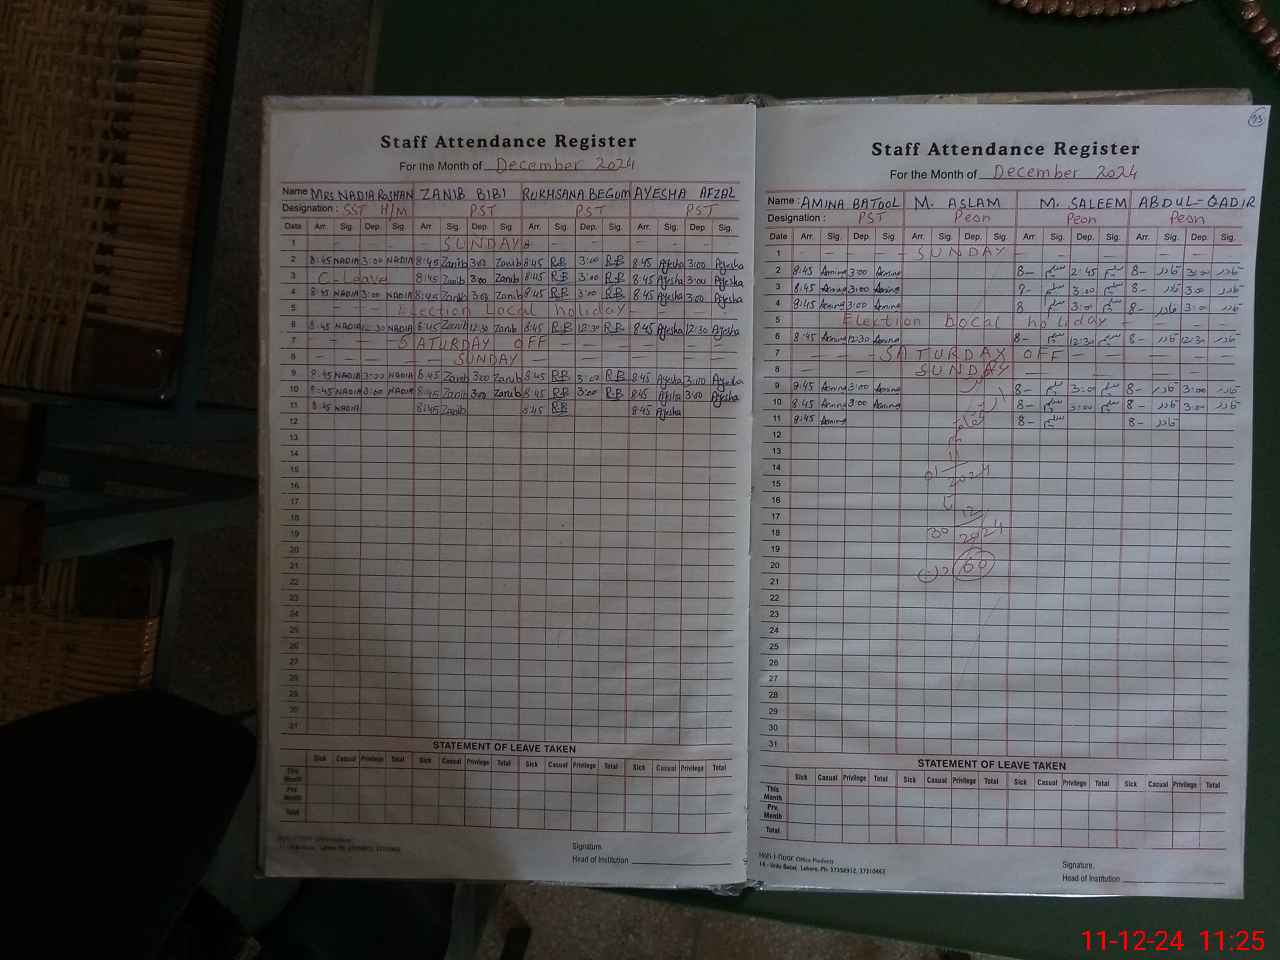 Staff Attendance Register
For the Month of December 2024
Name MRS NADIA ROSHAN ZANIB BIBI RUKHSANA BEGUM AYESHA AFZAL
Designation : SST H/M PST PST PST
Date Arr. Sig. Dep. Sig. Arr. Sig. Dep. Sig. Arr. Sig. Dep. Sig. Arr. Sig. Dep. Sig.
1 — SUNDAY — — — — —
2 8:45 NADIA 3:00 NADIA 8:45 Zanib 3:00 Zanib 8:45 R.B 3:00 R.B 8:45 Ayesha 3:00 Ayesha
3 C-Leave 8:45 Zanib 3:00 Zanib 8:45 R.B 3:00 R.B 8:45 Ayesha 3:00 Ayesha
4 8:45 NADIA 3:00 NADIA 8:45 Zanib 3:00 Zanib 8:45 R.B 3:00 R.B 8:45 Ayesha 3:00 Ayesha
5 — — — Election Local holiday — — — —
6 8:45 NADIA 12:30 NADIA 8:45 Zanib 12:30 Zanib 8:45 R.B 12:30 R.B 8:45 Ayesha 12:30 Ayesha
7 — — — SATURDAY OFF — — — —
8 — — — — SUNDAY — — — —
9 8:45 NADIA 3:00 NADIA 8:45 Zanib 3:00 Zanib 8:45 R.B 3:00 R.B 8:45 Ayesha 3:00 Ayesha
10 8:45 NADIA 3:00 NADIA 8:45 Zanib 3:00 Zanib 8:45 R.B 3:00 R.B 8:45 Ayesha 3:00 Ayesha
11 8:45 NADIA 8:45 Zanib 8:45 R.B 8:45 Ayesha
12
13
14
15
16
17
18
19
20
21
22
23
24
25
26
27
28
29
30
31
STATEMENT OF LEAVE TAKEN
Sick Casual Privilege Total Sick Casual Privilege Total Sick Casual Privilege Total Sick Casual Privilege Total
This Month
Prv. Month
Total
Signature
Head of Institution
93
Staff Attendance Register
For the Month of December 2024
Name : AMINA BATOOL M. ASLAM M. SALEEM ABDUL-QADIR
Designation : PST Peon Peon Peon
Date Arr. Sig. Dep. Sig. Arr. Sig. Dep. Sig. Arr. Sig. Dep. Sig. Arr. Sig. Dep. Sig.
1 — — — — SUNDAY — — — —
2 8:45 Amina 3:00 Amina 8- سلیم 2:45 سلیم 8- قادر 3:00 قادر
3 8:45 Amina 3:00 Amina 9- سلیم 3:00 سلیم 8- قادر 3:00 قادر
4 8:45 Amina 3:00 Amina 8 سلیم 3:00 سلیم 8- قادر 3:00 قادر
5 Election Local holiday —
6 8:45 Amina 12:30 Amina 8- سلیم 12:30 سلیم 8- قادر 12:30 قادر
7 — — — SATURDAY OFF — — —
8 — — — — SUNDAY — — — —
9 8:45 Amina 3:00 Amina 8- سلیم 3:00 سلیم 8- قادر 3:00 قادر
10 8:45 Amina 3:00 Amina 8- سلیم 3:00 سلیم 8- قادر 3:00 قادر
11 8:45 Amina 8- سلیم 8- قادر
12
13
14 01 11 2024
15
16
17
18 30 12 2024
19
20 60
21
22
23
24
25
26
27
28
29
30
31
STATEMENT OF LEAVE TAKEN
Sick Casual Privilege Total Sick Casual Privilege Total Sick Casual Privilege Total Sick Casual Privilege Total
This Month
Prv. Month
Total
Office Products
14 - Urdu Bazar, Lahore. Ph: 37358912, 37310463
Signature.
Head of Institution
11-12-24 11:25